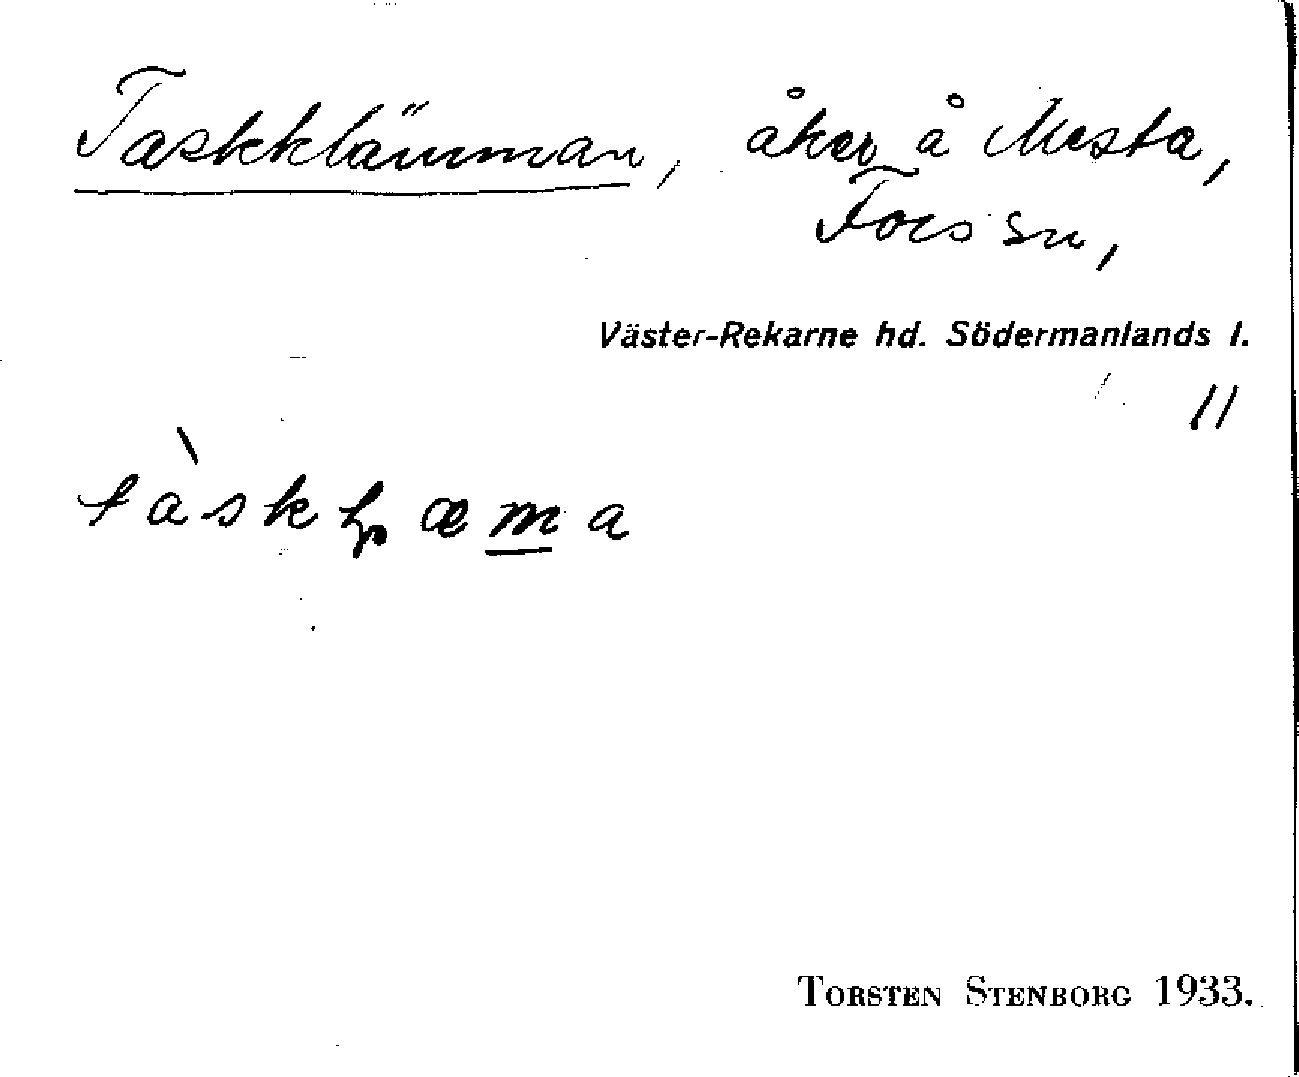 Taskklämman, åker å Mesta,
Fors sn,
Väster-Rekarne hd. Södermanlands l.
11
TORSTEN STENBORG 1933.